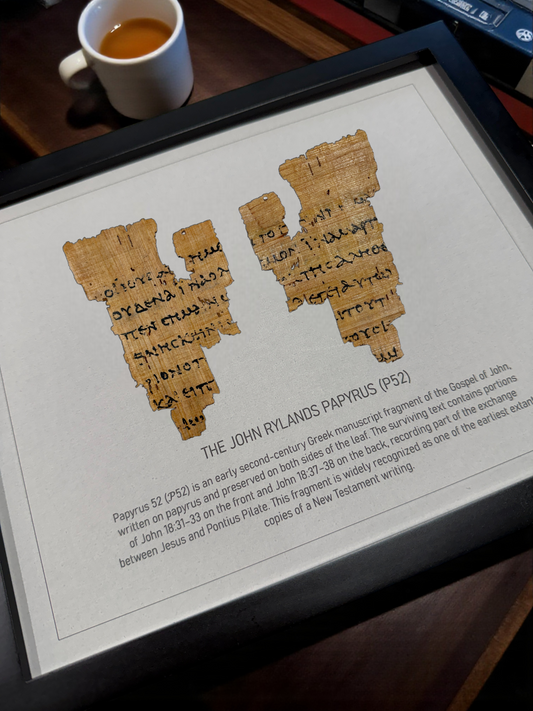 ΟΥΔΕΝΑ ΙΝΑ Ο Λ
ΠΕΝ
ΝΗCΚΕΙΝ
ΡΙΟΝ Ο
ΚΑΙ ΕΙΠ
ΤΗC ΑΛΗΘΕ
ΑΥΤΩ
ΤΟΥΤ
THE JOHN RYLANDS PAPYRUS (P52)
Papyrus 52 (𝔓52) is an early second-century Greek manuscript fragment of the Gospel of John,
written on papyrus and preserved on both sides of the leaf. The surviving text contains portions
of John 18:31–33 on the front and John 18:37–38 on the back, recording part of the exchange
between Jesus and Pontius Pilate. This fragment is widely recognized as one of the earliest extant
copies of a New Testament writing.